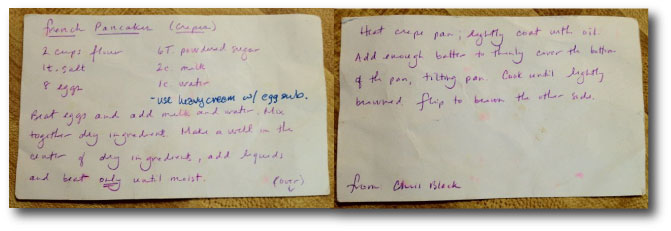 French Pancakes (Crepes)
2 cups flour 6T. powdered sugar
1t. salt 2c. milk
8 eggs 1c. water
-use heavy cream w/ egg sub.
Beat eggs and add milk and water. Mix
together dry ingredient. Make a well in the
center of dry ingredient, add liquids
and beat only until moist. (over)
Heat crepe pan; lightly coat with oil.
Add enough batter to thinly cover the bottom
of the pan, tilting pan. Cook until lightly
browned, flip to brown the other side.
from Chris Black